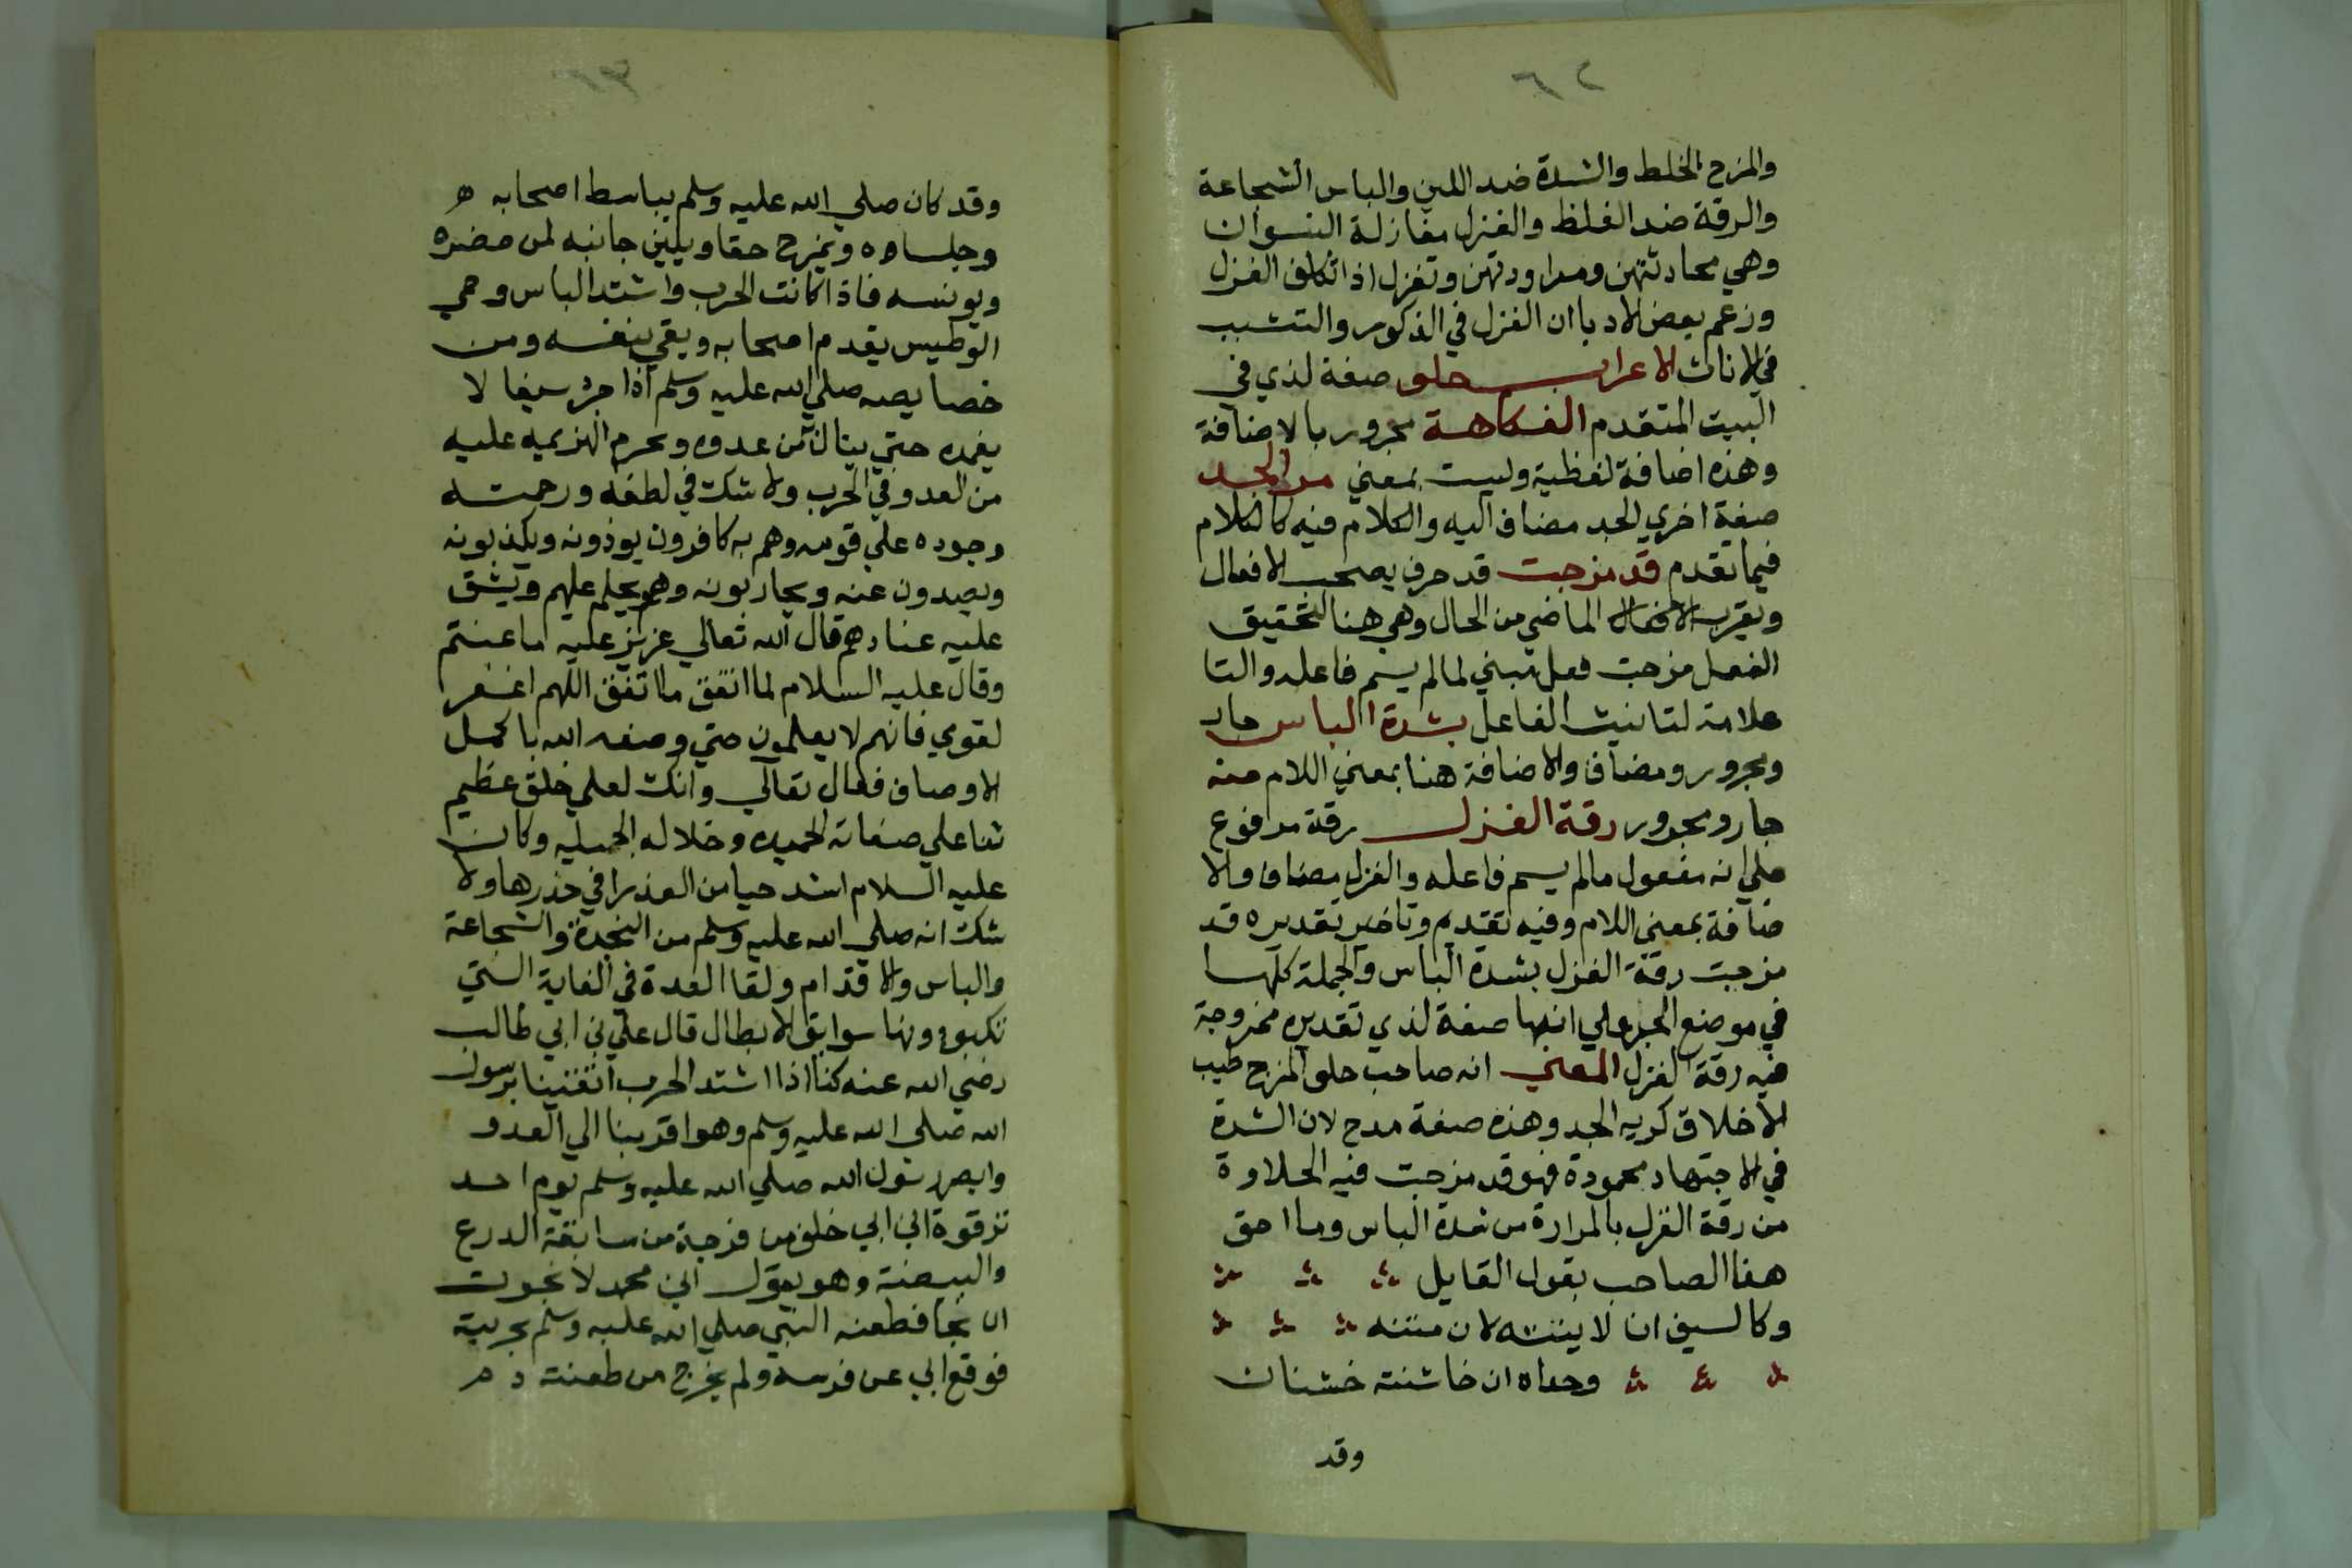 ٦٢
والمزح الخلط والشدة ضد اللين والباس الشجاعة
والرقة ضد الغلظ والغزل مغازلة النسوان
وهي محادثتهن ومراودتهن وتغزل اذا تكلف الغزل
وزعم بعض الادبا ان الغزل في الذكور والتشبب
في الاناث الاعراب حلو صفة لذي في
البيت المتقدم الفكاهة مجرور بالاضافة
وهذه اضافة لفظية وليست بمعني مر الجد
صفة اخري الجد مضاف اليه والكلام فيه كالكلام
فيما تقدم قد مزجت قد حرف يصحب الافعال
ويقرب الافعال الماضي من الحال وهي هنا لتحقيق
الفعل مزجت فعل مبني لمالم يسم فاعله والتا
علامة لتانيث الفاعل بشدة الباس جار
ومجرور ومضاف والاضافة هنا بمعني اللام منه
جار ومجرور رقة الغزل رقة مرفوع
علي انه مفعول مالم يسم فاعله والغزل مضاف والا
ضافة بمعني اللام وفيه تقديم وتاخير تقديره قد
مزجت رقة الغزل بشدة الباس والجملة كلها
في موضع الجر علي انها صفة لذي تقديره ممزوجة
فيه رقة الغزل المعني انه صاحب حلو المزح طيب
الاخلاق كريه الجد وهذه صفة مدح لان الشدة
في الاجتهاد محمودة فهو قد مزجت فيه الحلاوة
من رقة الغزل بالمرارة من شدة الباس وما احق
هذا الصاحب بقول القايل
وكالسيف ان لا ينته لان متنه
وحداه ان خاشنته خشنان
وقد
وقد كان صلي الله عليه وسلم يباسط اصحابه
وجلساوه ويمزح حقا ويلين جانبه لمن حضره
ويونسه فاذا كانت الحرب واشتد الباس وحمي
الوطيس يقدم اصحابه ويقي بنفسه ومن
خصايصه صلي الله عليه وسلم اذا جرد سيفا لا
يغمده حتي ينال من عدوه ويحرم الهزيمه عليه
من العدو في الحرب ولا شك في لطفه ورحمته
وجوده علي قومه وهم به كافرون يوذونه ويكذبونه
ويصدون عنه ويحاربونه وهو يحلم عليهم ويشق
عليه عنادهم قال الله تعالي عزيز عليه ما عنتم
وقال عليه السلام لما اتفق ما اتفق اللهم اغفر
لقومي فانهم لا يعلمون حتي وصفه الله باكمل
الاوصاف فقال تعالي وانك لعلي خلق عظيم
ثنا علي صفاته الحميده وخلاله الجميله وكان
عليه السلام اشد حيا من العذرا في خدرها ولا
شك انه صلي الله عليه وسلم من النجدة والشجاعة
والباس والاقدام ولقا العدة في الغاية التي
تكبو دونها سوابق الابطال قال علي بن ابي طالب
رضي الله عنه كنا اذا اشتد الحرب اتقينا برسول
الله صلي الله عليه وسلم وهو اقربنا الي العدو
وابصر رسول الله صلي الله عليه وسلم يوم احد
ترقوة ابي بن خلف من فرجة من سابغة الدرع
والبيضة وهو يقول اين محمد لا نجوت
ان نجا فطعنه النبي صلي الله عليه وسلم بحربته
فوقع ابي عن فرسه ولم يخرج من طعنته دم